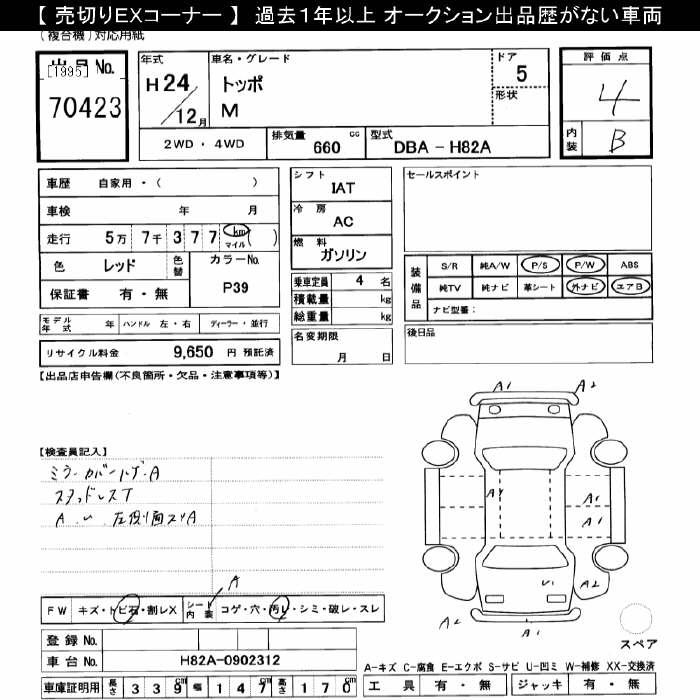 【 売切りEXコーナー 】 過去１年以上 オークション出品歴がない車両
(複合機) 対応用紙
出品 No.
[1995]
70423
年式
H 24
/ 12 月
車名・グレード
トッポ
M
ドア
5
形状
評価点
4
内装
B
2WD ・ 4WD
排気量
cc
660
型式
DBA － H82A
車歴 自家用・( )
車検 年 月
走行 5万 7千 3 7 7 km ( )
マイル
色 レッド
色替
カラーNo.
P39
保証書 有・無
シフト
IAT
冷房
AC
燃料
ガソリン
乗車定員 4 名
積載量 kg
総重量 kg
セールスポイント
装備品
S/R 純A/W P/S P/W ABS
純TV 純ナビ 革シート 外ナビ エアB
ナビ型番：
モデル年式 年 ハンドル 左・右 ディーラー・並行
名変期限
月 日
後日品
リサイクル料金 9,650 円 預託済
【出品店申告欄(不良箇所・欠品・注意事項等)】
【検査員記入】
ミラーカバーハゲ・A
スタッドレスT
A . U 左側面スリA
A
A1
A2
A4
A1
A1
U1
A2
A2
A1
FW キズ・トビ石・割レX
シート内装
コゲ・穴・汚レ・シミ・破レ・スレ
登録 No.
車台 No. H82A-0902312
車庫証明用 長さ 339 cm 幅 147 cm 高さ 170 cm
スペア
A-キズ C-腐食 E-エクボ S-サビ U-凹ミ W-補修 XX-交換済
工具 有・無 ジャッキ 有・無